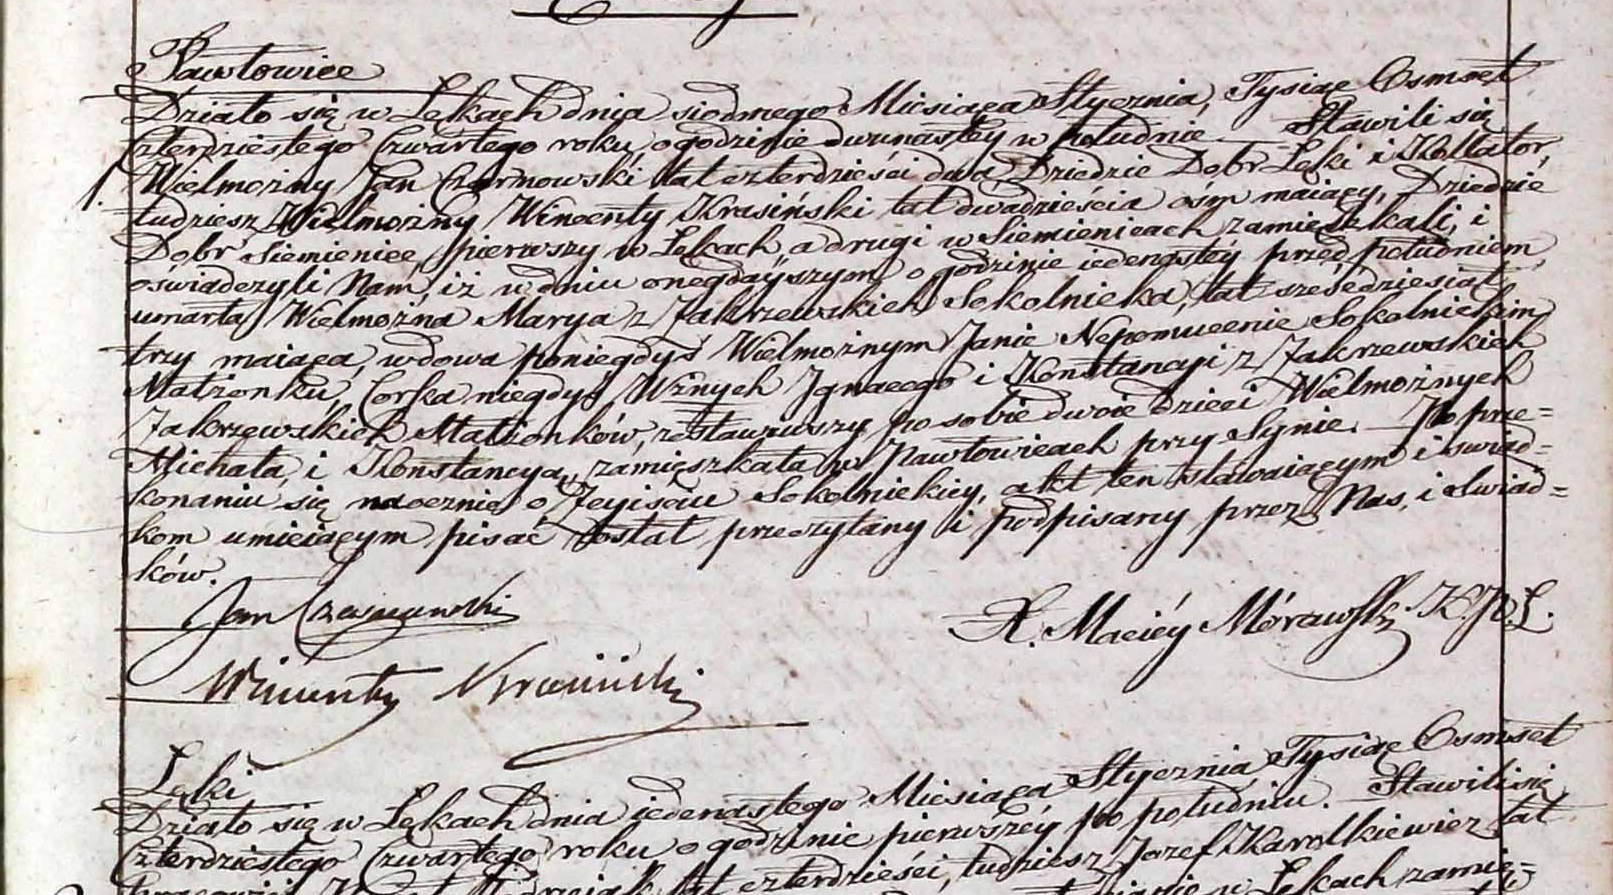 Pawłowice
Działo się w Łękach dnia siodmego Miesiąca Stycznia, Tysiąc Osmset
Czterdziestego Czwartego roku, o godzinie dwunastey w południe — Stawili się
1. Wielmożny Jan Czarnowski lat czterdzieści dwa, Dziedzic Dobr Łęki i Kollator,
tudziesz Wielmożny Wincenty Krasiński lat dwadzieścia ośm maiący, Dziedzic
Dobr Siemienice, pierwszy w Łękach, a drugi w Siemienicach zamieszkali, i
oświadczyli Nam, iż w dniu onegdayszym o godzinie iedenastéy przed południem,
umarła Wielmożna Marya z Zakrzewskich Sokolnicka, lat sześćdziesiąt
trzy maiąca, wdowa poniegdyś Wielmożnym Janie Nepomucenie Sokolnickim
Małżonku, Corka niegdyś Wżnych Ignacego i Konstancyi z Zakrzewskich
Zakrzewskich Małżonków, zostawiwszy po sobie dwoie dzieci Wielmożnych
Michała, i Konstancyą, zamieszkała w Pawłowicach przy Synie. — Po prze=
konaniu się naocznie o Zeyściu Sokolnickiey, akt ten stawaiącym i swiad=
kom umieiącym pisać został przeczytany i podpisany przez Nas, i Swiad=
ków.
Jan Czarnowski
X. Maciéy Mórawski K. P. Ł.
Wincenty Krasiński
Łęki
Działo się w Łękach dnia iedenastego Miesiąca Stycznia Tysiąc Osmset
Czterdziestego Czwartego roku o godzinie pierwszéy po południu. Stawili się
lat czterdzieści, tudziesz Jozef Karolkiewicz lat
w Łękach zamie=